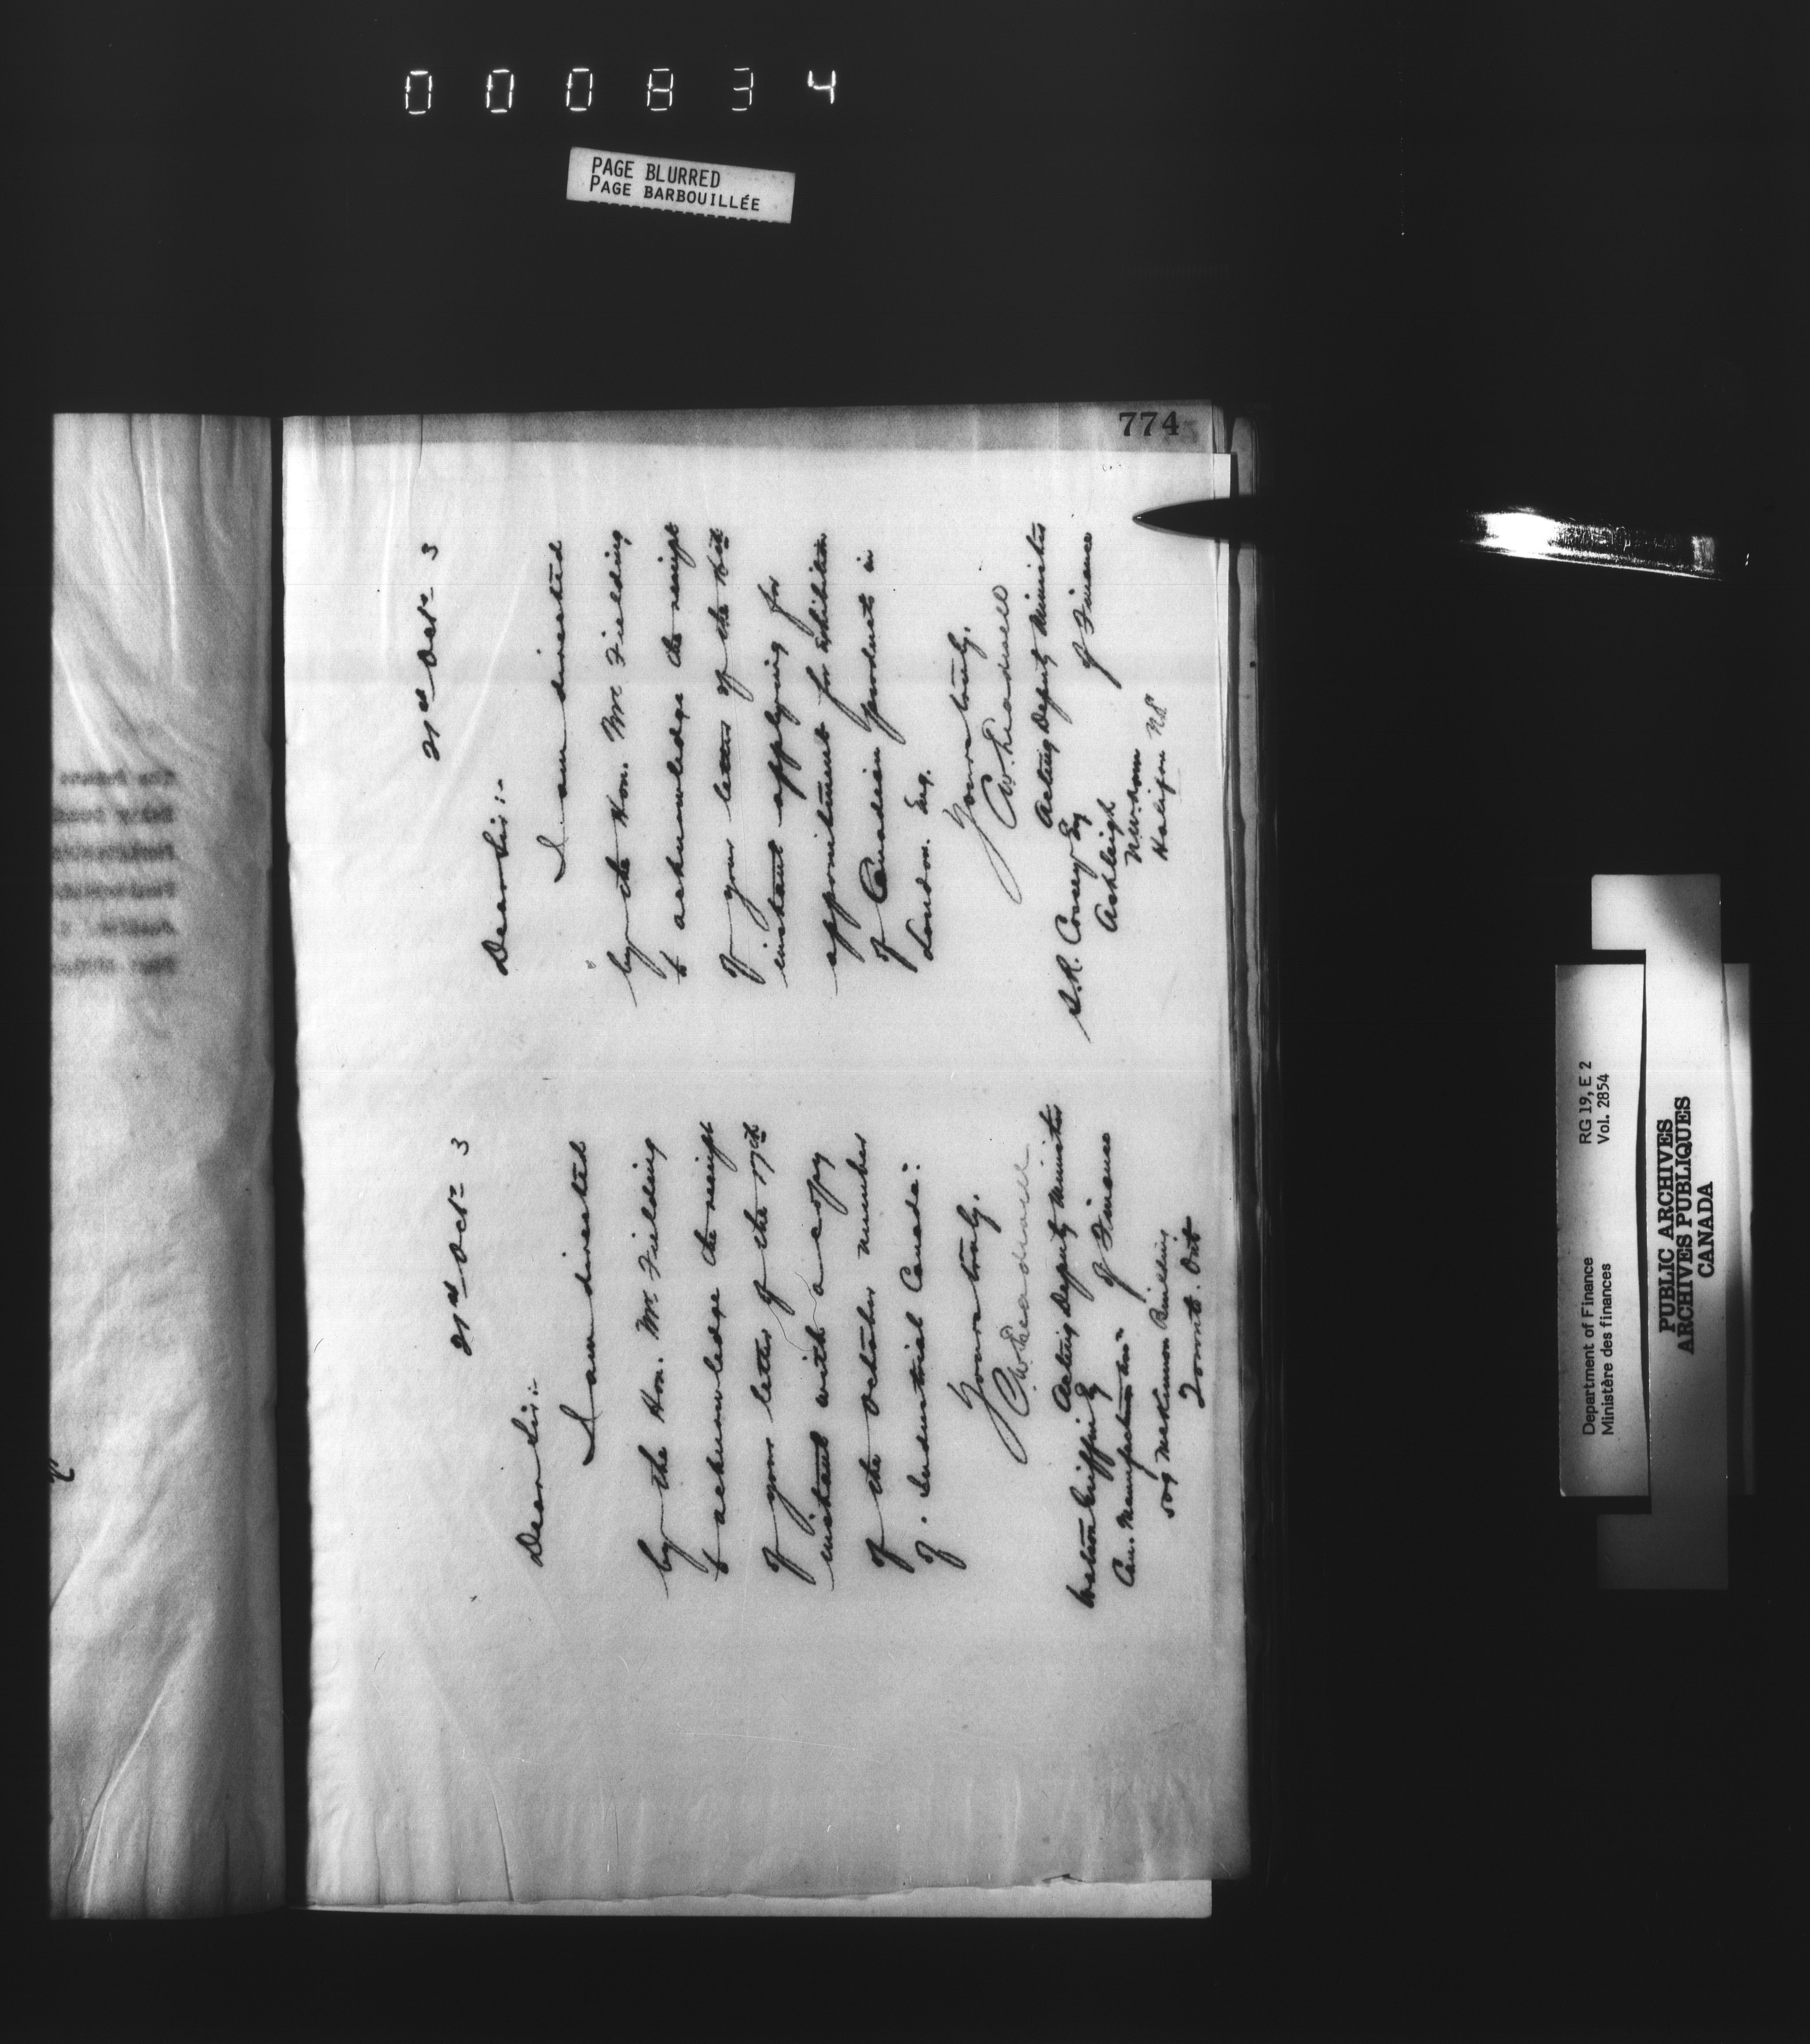 000834
PAGE BLURRED
PAGE BARBOUILLÉE
774
21st Oct^r 3
Dear Sir:-
I am directed
by the Hon. Mr. Fielding
to acknowledge the receipt
of your letter of the 17th
instant with a copy
of the October number
of "Industrial Canada":
Yours truly,
Acting Deputy Minister
of Finance
Watson Griffin Esq
Can. Manufacturers Assn
507 McKinnon Building
Toronto. Ont
21st Oct^r 3
Dear Sir:-
I am directed
by the Hon. Mr. Fielding
to acknowledge the receipt
of your letter of the
instant applying for
appointment for Exhibition
of Canadian products in
London. Eng.
Yours truly,
Acting Deputy Minister
of Finance
S.R. Cossey Esq
Ashleigh
Halifax N.S.
Department of Finance RG 19, E 2
Ministère des finances Vol. 2854
PUBLIC ARCHIVES
ARCHIVES PUBLIQUES
CANADA